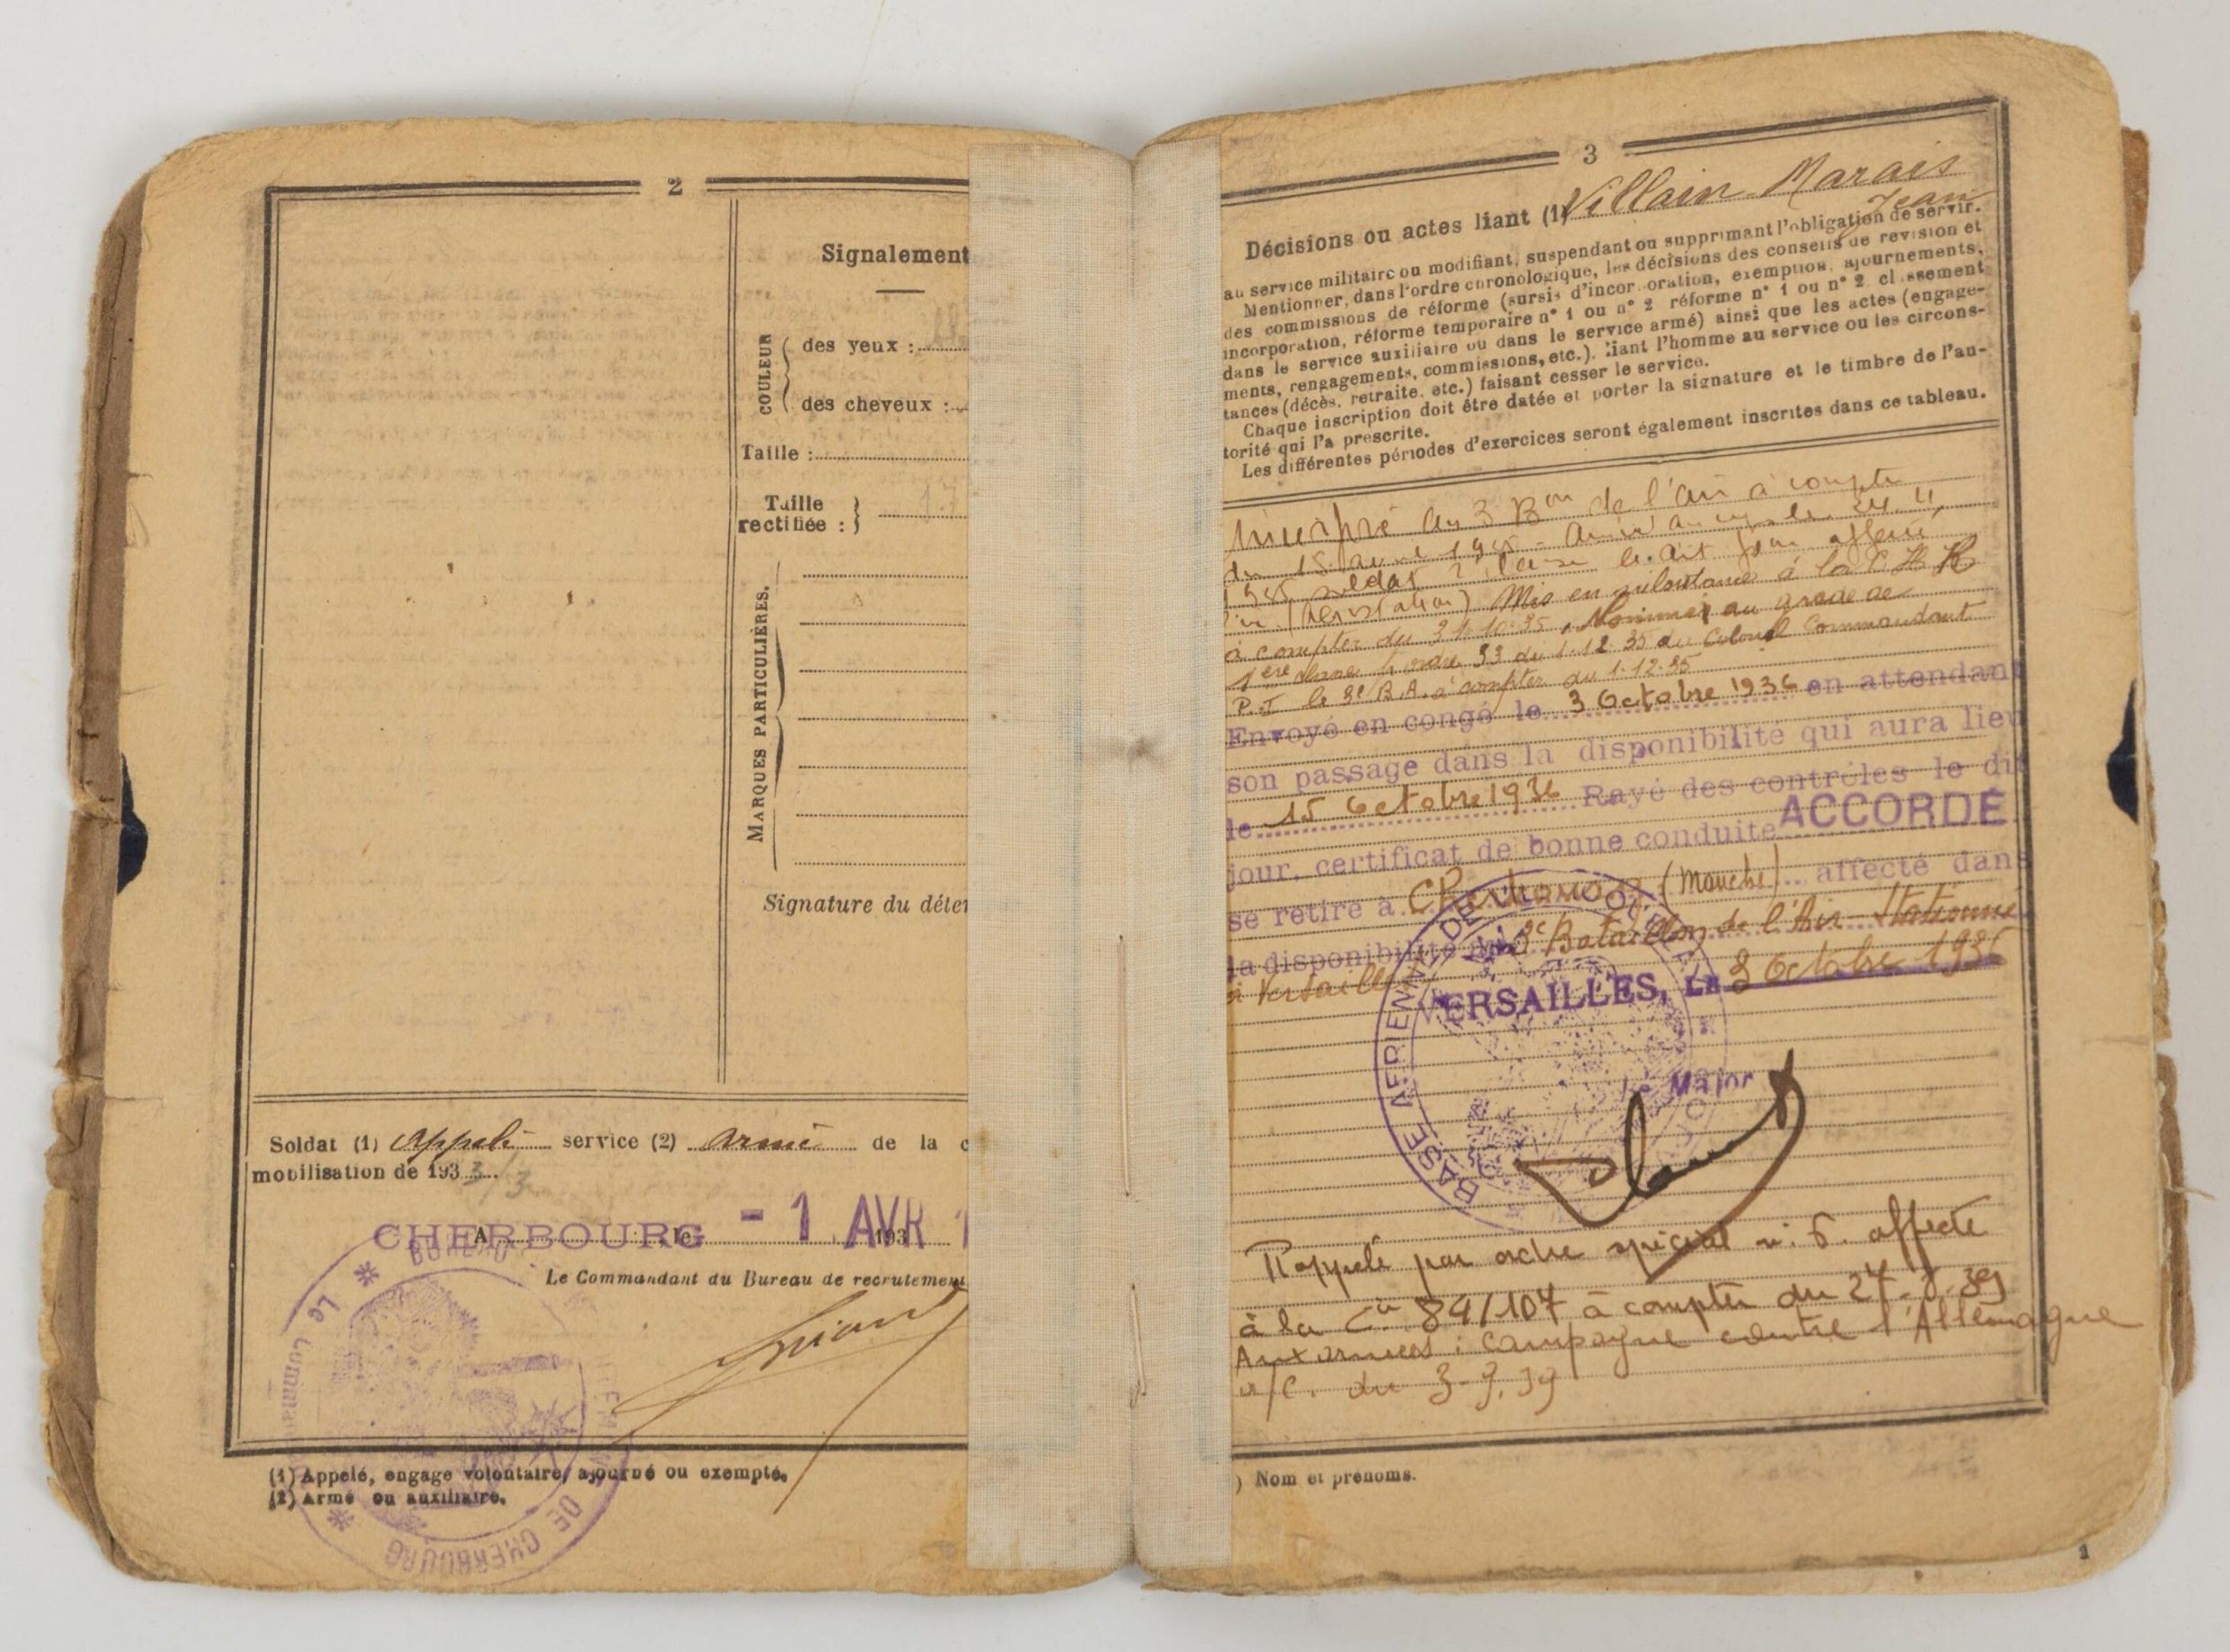 2
Signalement
COULEUR
des yeux :
des cheveux :
Taille :
Taille
rectifiée :
MARQUES PARTICULIÈRES.
Signature du déten
Soldat (1) Appelé service (2) armé de la c
mobilisation de 193 3/3
CHERBOURG - 1 AVR 1
A le 193
Le Commandant du Bureau de recrutement
BUREAU
Le Commandant
DE CHERBOURG
(1) Appelé, engagé volontaire, ajourné ou exempté.
(2) Armé ou auxiliaire.
3
Décisions ou actes liant (1) Villain Marais
Jean
au service militaire ou modifiant, suspendant ou supprimant l'obligation de servir.
Mentionner, dans l'ordre chronologique, les décisions des conseils de revision et
des commissions de réforme (sursis d'incorporation, exemption, ajournements,
incorporation, réforme temporaire n° 1 ou n° 2 réforme n° 1 ou n° 2 classement
dans le service auxiliaire ou dans le service armé) ainsi que les actes (engage-
ments, rengagements, commissions, etc.), liant l'homme au service ou les circons-
tances (décès, retraite, etc.) faisant cesser le service.
Chaque inscription doit être datée et porter la signature et le timbre de l'au-
torité qui l'a prescrite.
Les différentes périodes d'exercices seront également inscrites dans ce tableau.
au 3 Bon de l'air à compter
du 15 avril 1935 - le 24.4
1935 soldat 2 classe le dit jour affecté
Mis en subsistance à la C H R
à compter du 31.10.35. Nommé au grade de
1ère classe ordre 33 du 1.12.35 du Colonel Commandant
P.I le 3e B.A. à compter du 1.12.35
Envoyé en congé le 3 Octobre 1936 en attendant
son passage dans la disponibilité qui aura lieu
le 15 Octobre 1936 Rayé des contrôles le dit
jour, certificat de bonne conduite ACCORDÉ
se retire à Cherbourg (Manche) affecté dans
la disponibilité au 3e Bataillon de l'Air Stationné
à Versailles
VERSAILLES, LE 3 Octobre 1936
BASE AERIENNE DE
Le Major
Rappelé par ordre spécial n. 6. affecté
à la Cie 84/107 à compter du 27.8.39
Aux armées : campagne contre l'Allemagne
a/c. du 3.9.39
) Nom et prénoms.
1